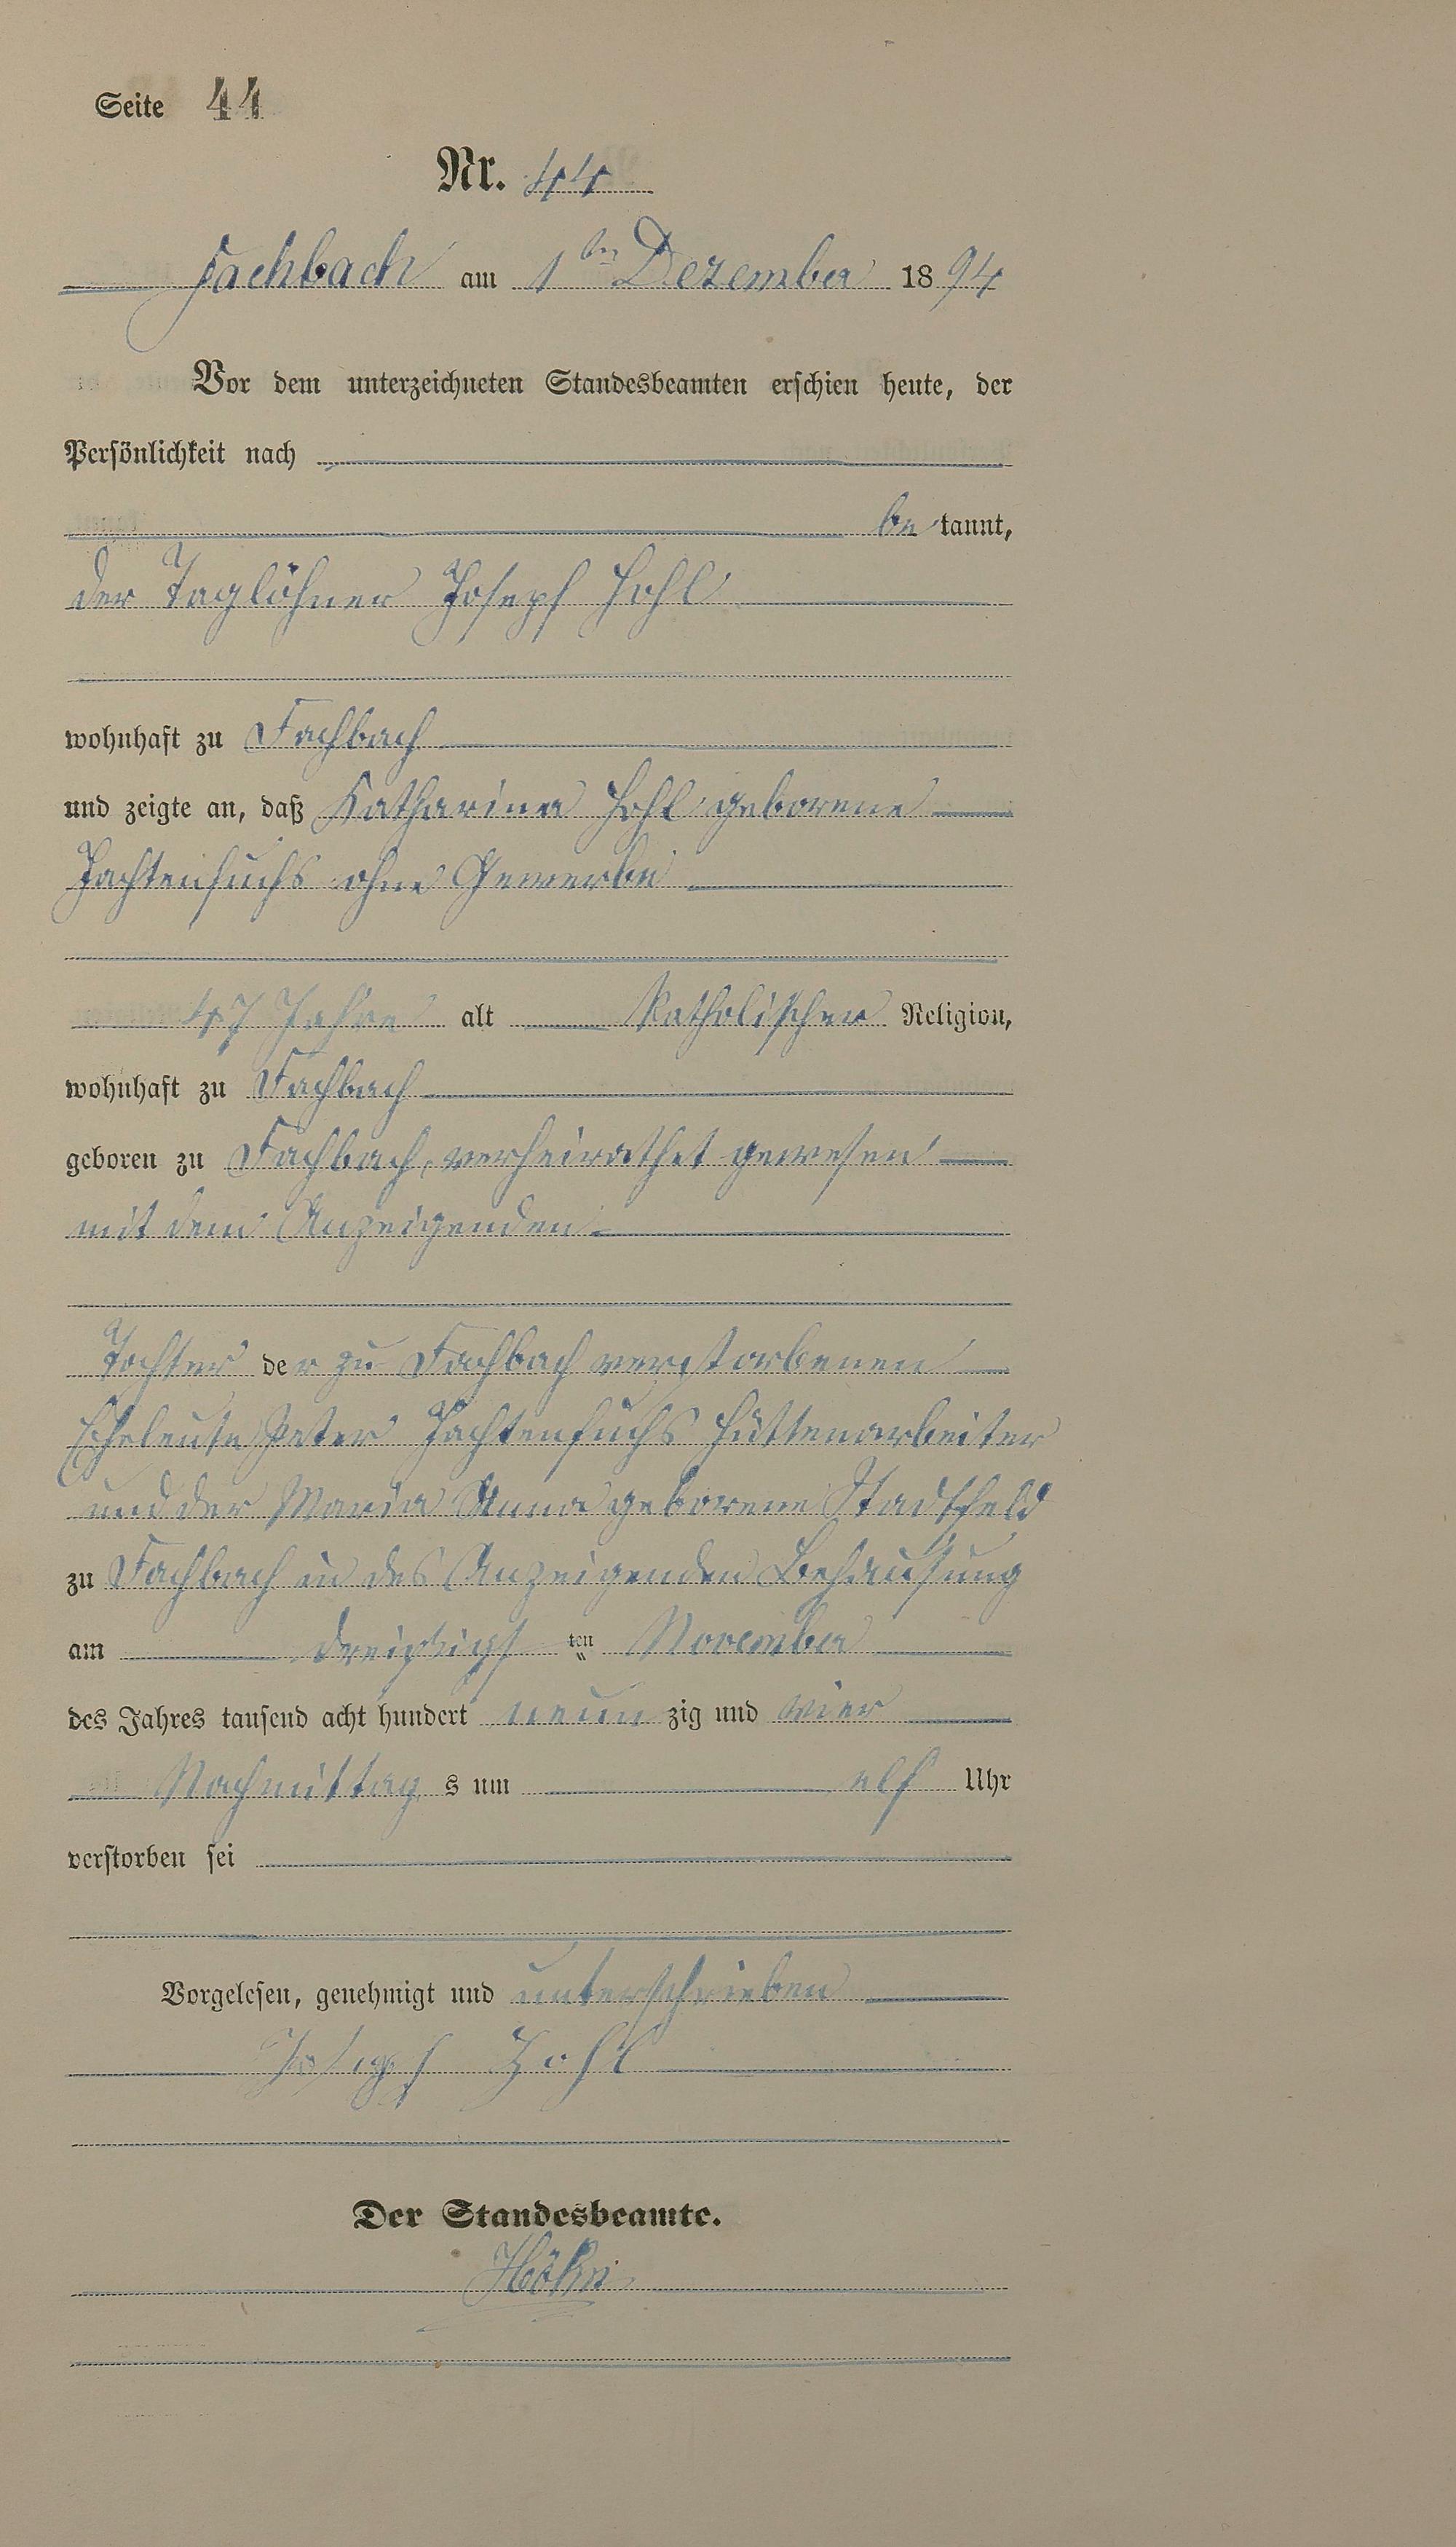 Seite 44
Nr. 44
Fachbach am 1ten Dezember 1894
Vor dem unterzeichneten Standesbeamten erschien heute, der
Persönlichkeit nach
be kannt,
der Taglöhner Joseph Hohl
wohnhaft zu Fachbach
und zeigte an, daß Katharina Hohl geborene
Hachtenfuchs ohne Gewerbe
47 Jahre alt katholischer Religion,
wohnhaft zu Fachbach
geboren zu Fachbach, verheirathet gewesen
mit dem Anzeigenden
Tochter der zu Fachbach verstorbenen
Eheleute Peter Hachtenfuchs Hüttenarbeiter
und der Maria Anna geborene Stadtfeld
zu Fachbach in des Anzeigenden Behausung
am dreißigsten November
des Jahres tausend acht hundert neunzig und vier
Nachmittags um elf Uhr
verstorben sei
Vorgelesen, genehmigt und unterschrieben
Joseph Hohl
Der Standesbeamte.
Höhn